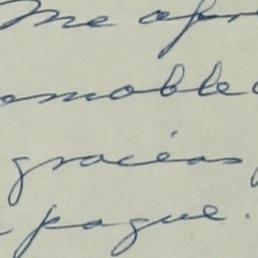 Me apr
omoble
gracias
pague.